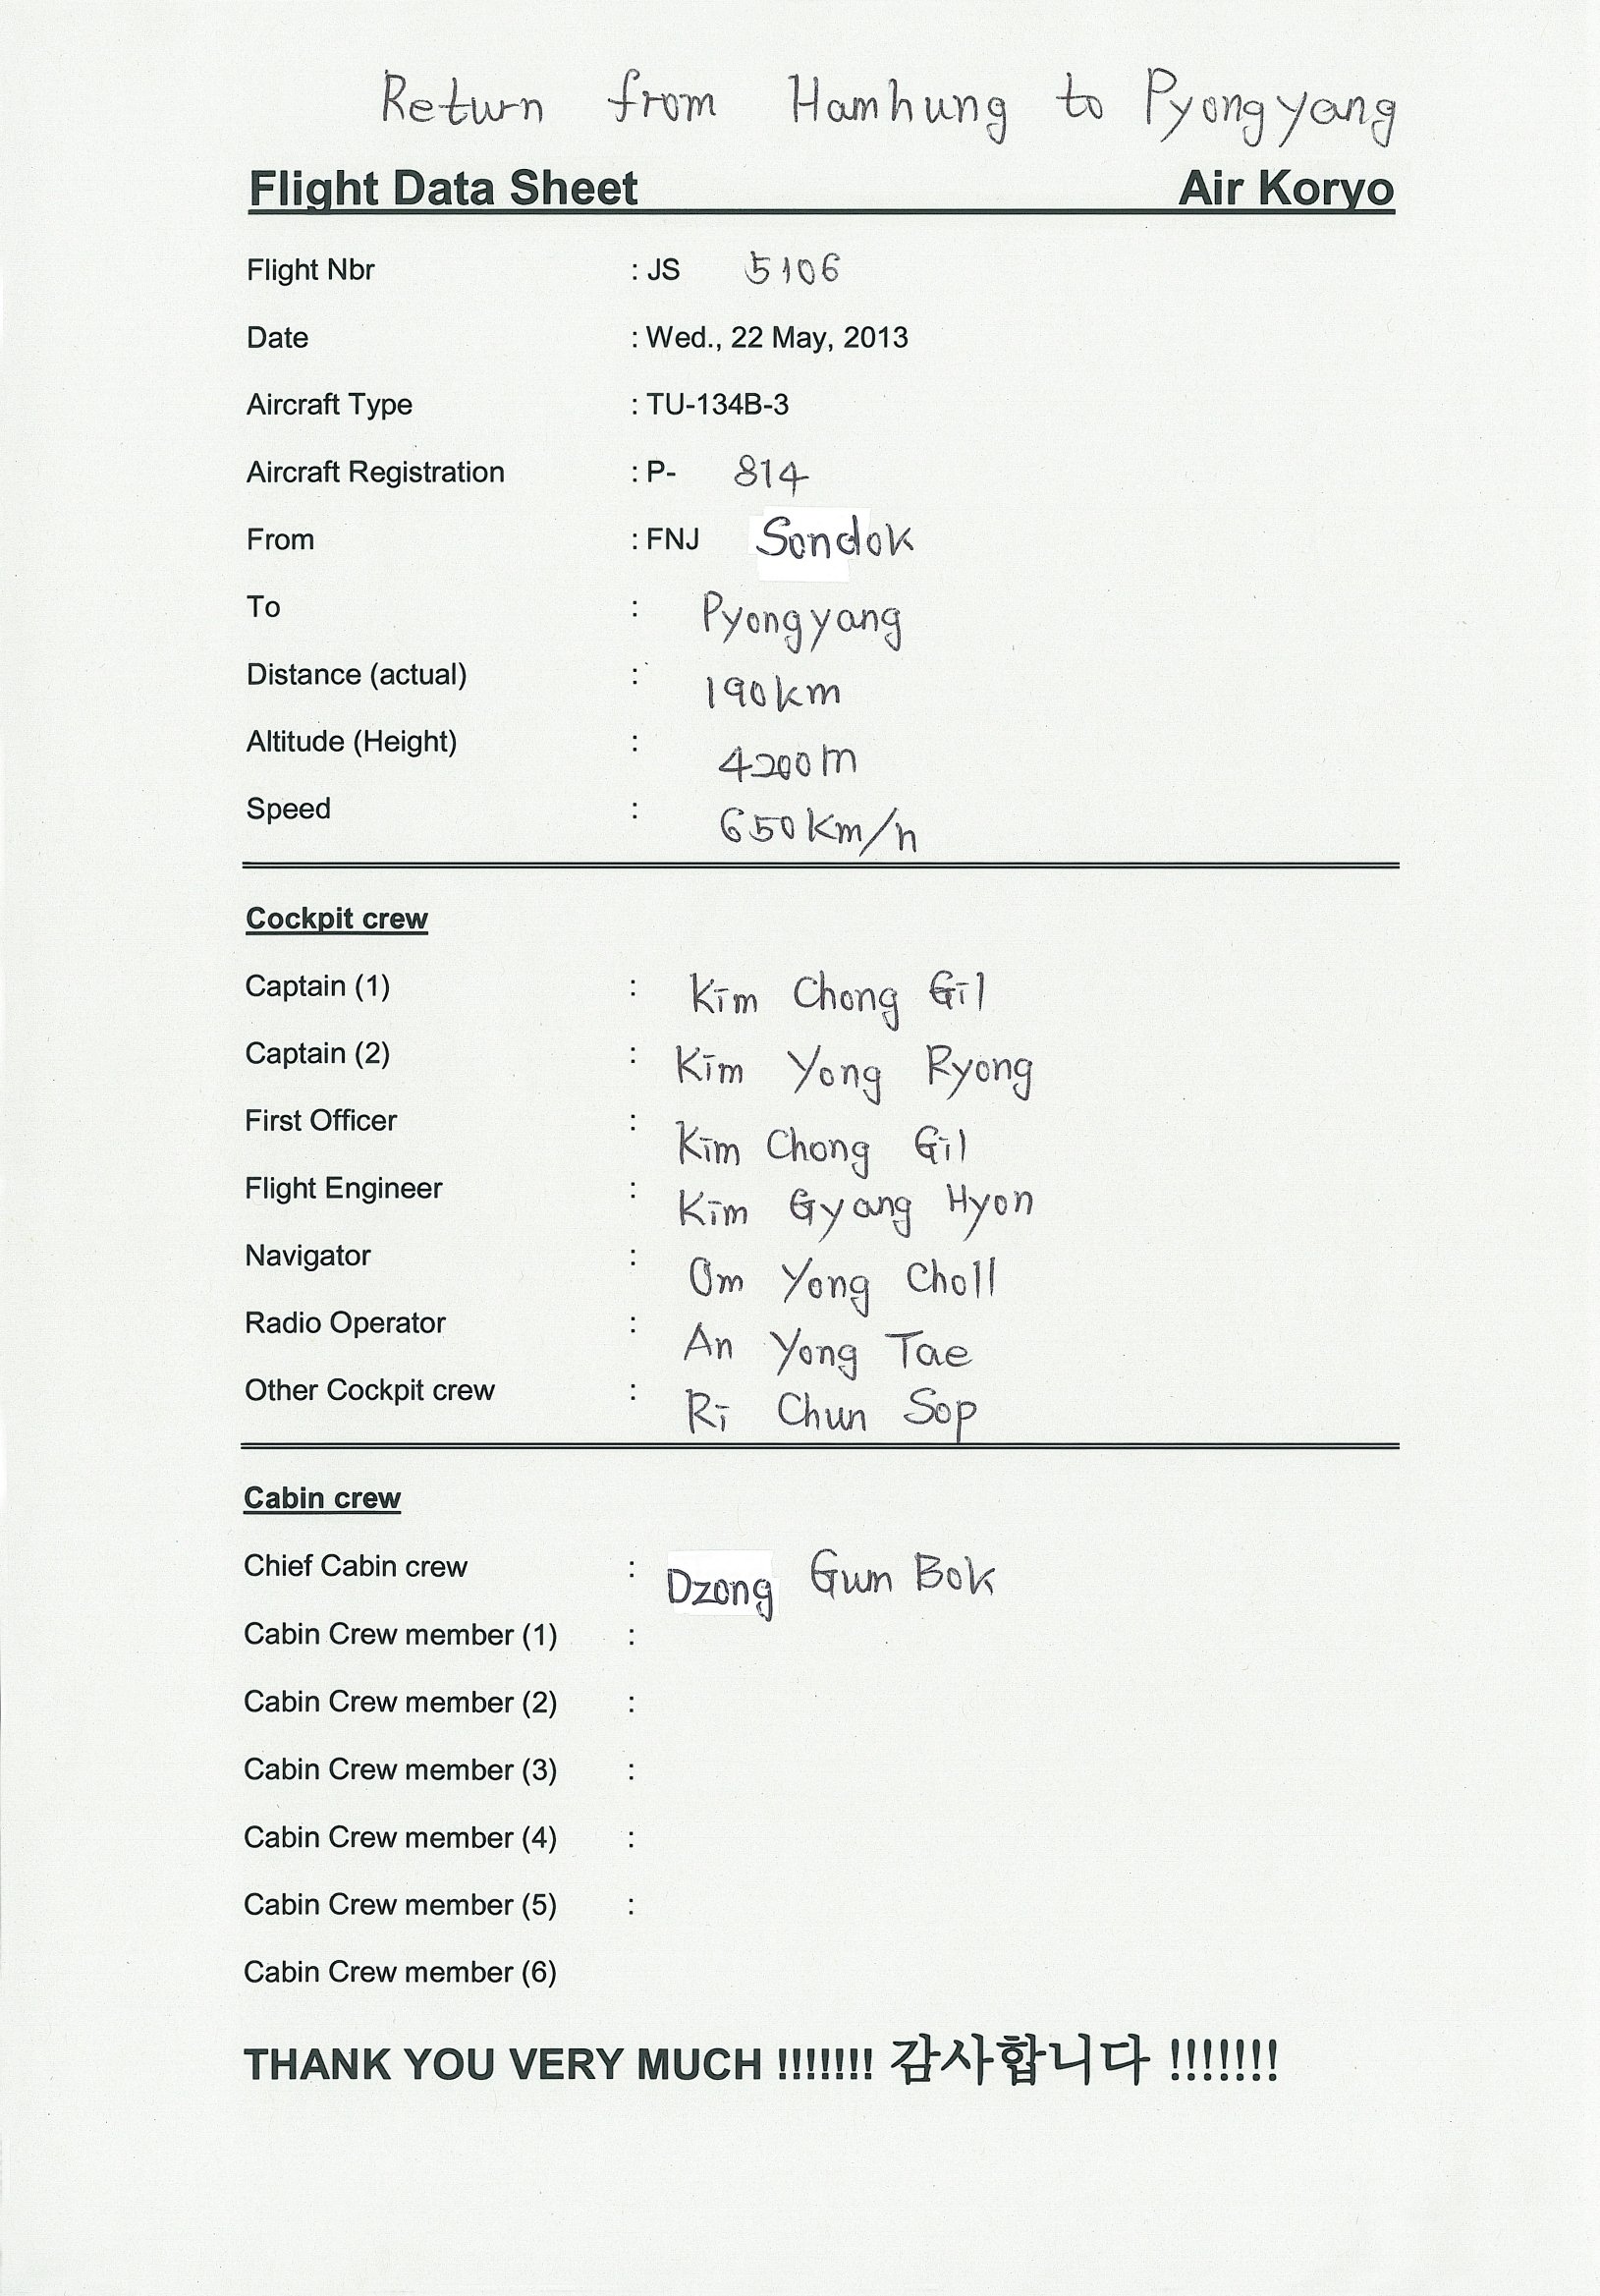 Return from Hamhung to Pyongyang
Flight Data Sheet Air Koryo
Flight Nbr : JS 5106
Date : Wed., 22 May, 2013
Aircraft Type : TU-134B-3
Aircraft Registration : P- 814
From : FNJ Sondok
To : Pyongyang
Distance (actual) : 190km
Altitude (Height) : 4200m
Speed : 650km/h
Cockpit crew
Captain (1) : Kim Chong Gil
Captain (2) : Kim Yong Ryong
First Officer : Kim Chong Gil
Flight Engineer : Kim Gyong Hyon
Navigator : Om Yong Choll
Radio Operator : An Yong Tae
Other Cockpit crew : Ri Chun Sop
Cabin crew
Chief Cabin crew : Dzong Gum Bok
Cabin Crew member (1) :
Cabin Crew member (2) :
Cabin Crew member (3) :
Cabin Crew member (4) :
Cabin Crew member (5) :
Cabin Crew member (6)
THANK YOU VERY MUCH !!!!!!! 감사합니다 !!!!!!!